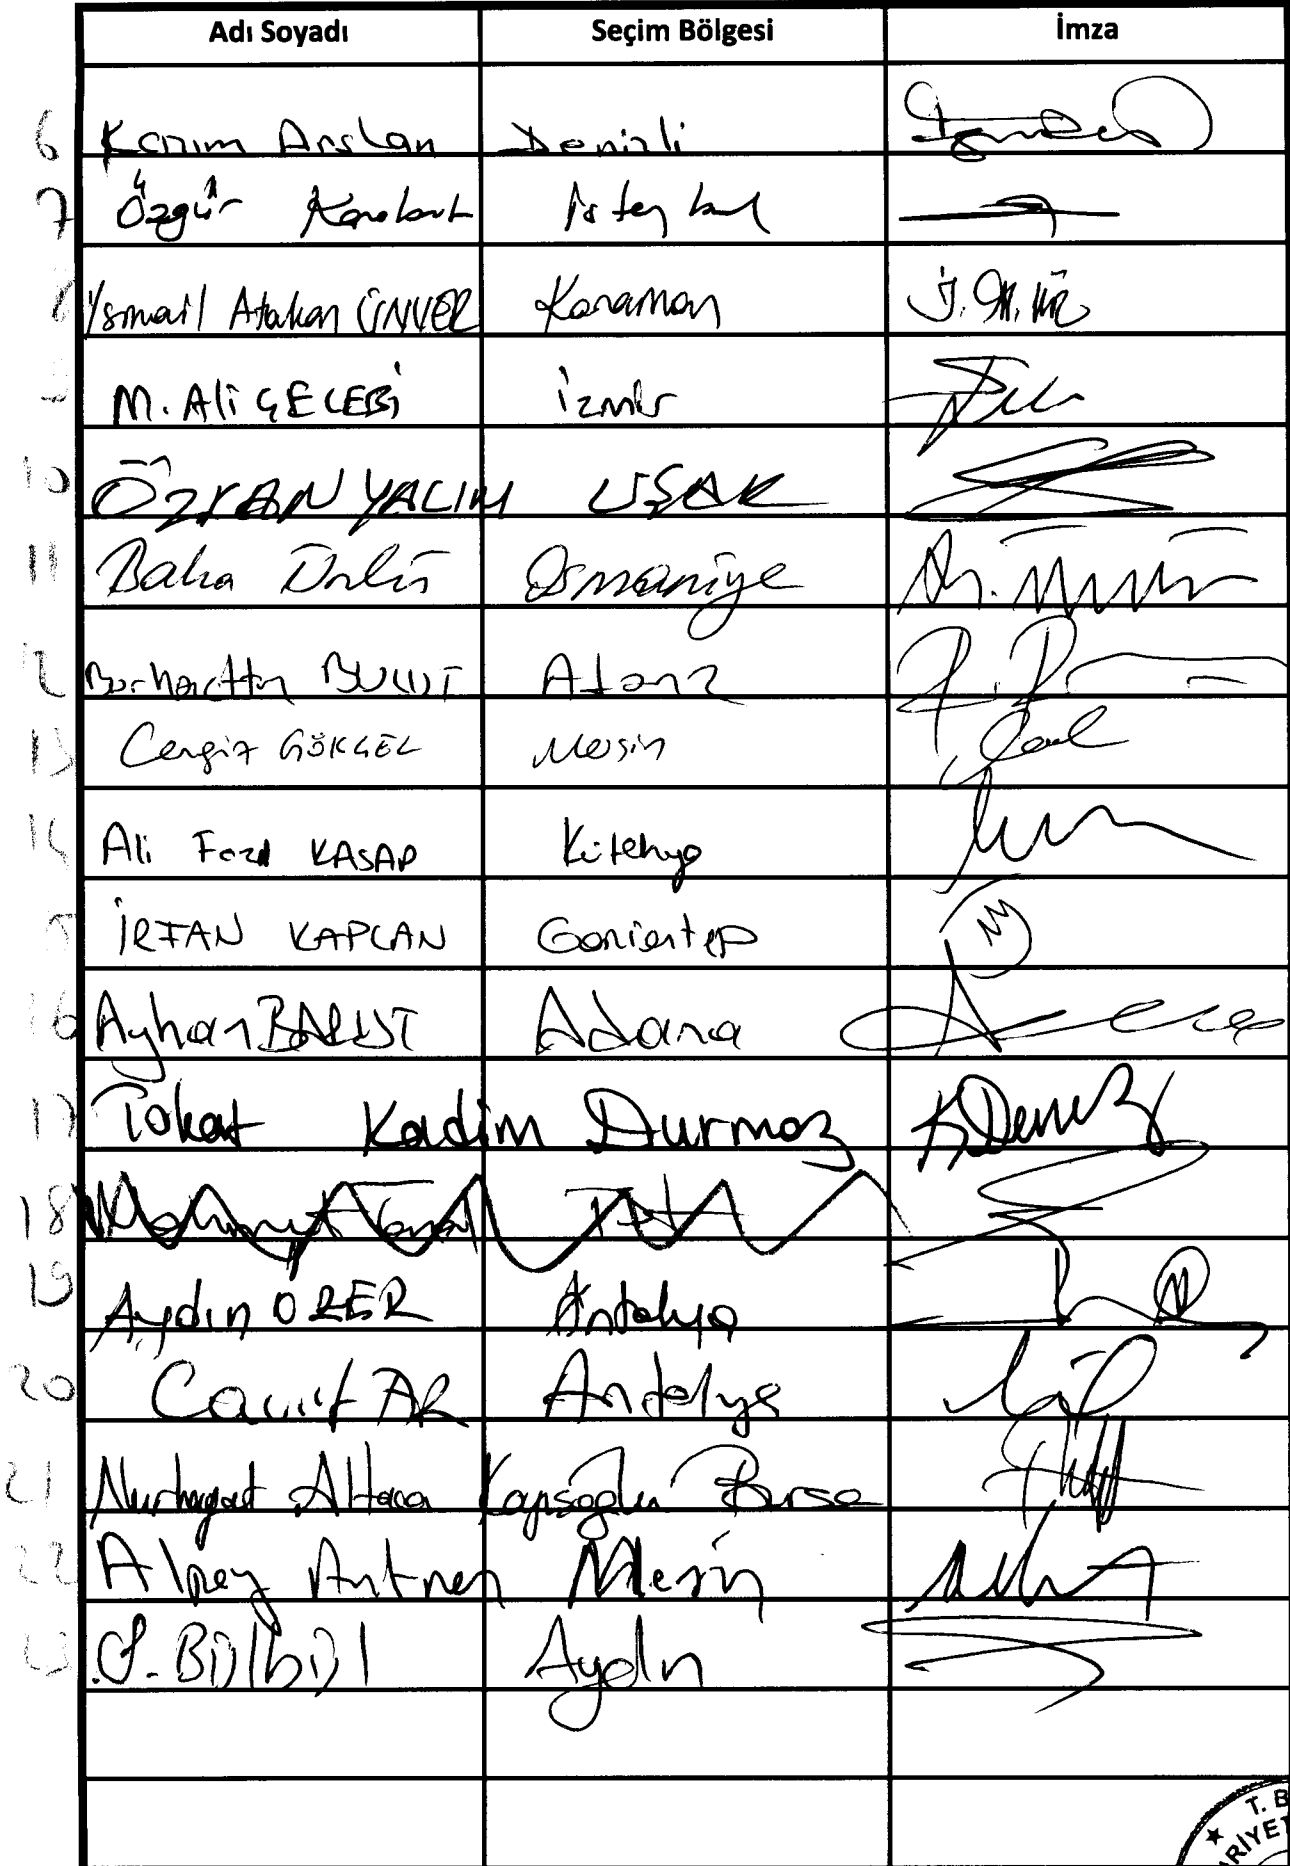 Adı Soyadı Seçim Bölgesi İmza
6 Kazım Arslan Denizli
7 Özgür Karabat İstanbul
İsmail Atakan ÜNVER Karaman
M. Ali ÇELEBİ İzmir
10 ÖZKAN YALIM UŞAK
11 Baha Ünlü Osmaniye
12 Burhanettin BULUT Adana
13 Cengiz GÖKÇEL Mersin
14 Ali Fazıl KASAP Kütahya
İRFAN KAPLAN Gaziantep
16 Ayhan BARUT Adana
17 Tokat Kadim Durmaz K.Durmaz
18
19 Aydın ÖZER Antalya
20 Cavit ARI Antalya
21 Nurhayat Altaca Kayışoğlu Bursa
22 Alpay Antmen Mersin
23 S. Bülbül Aydın
T. B